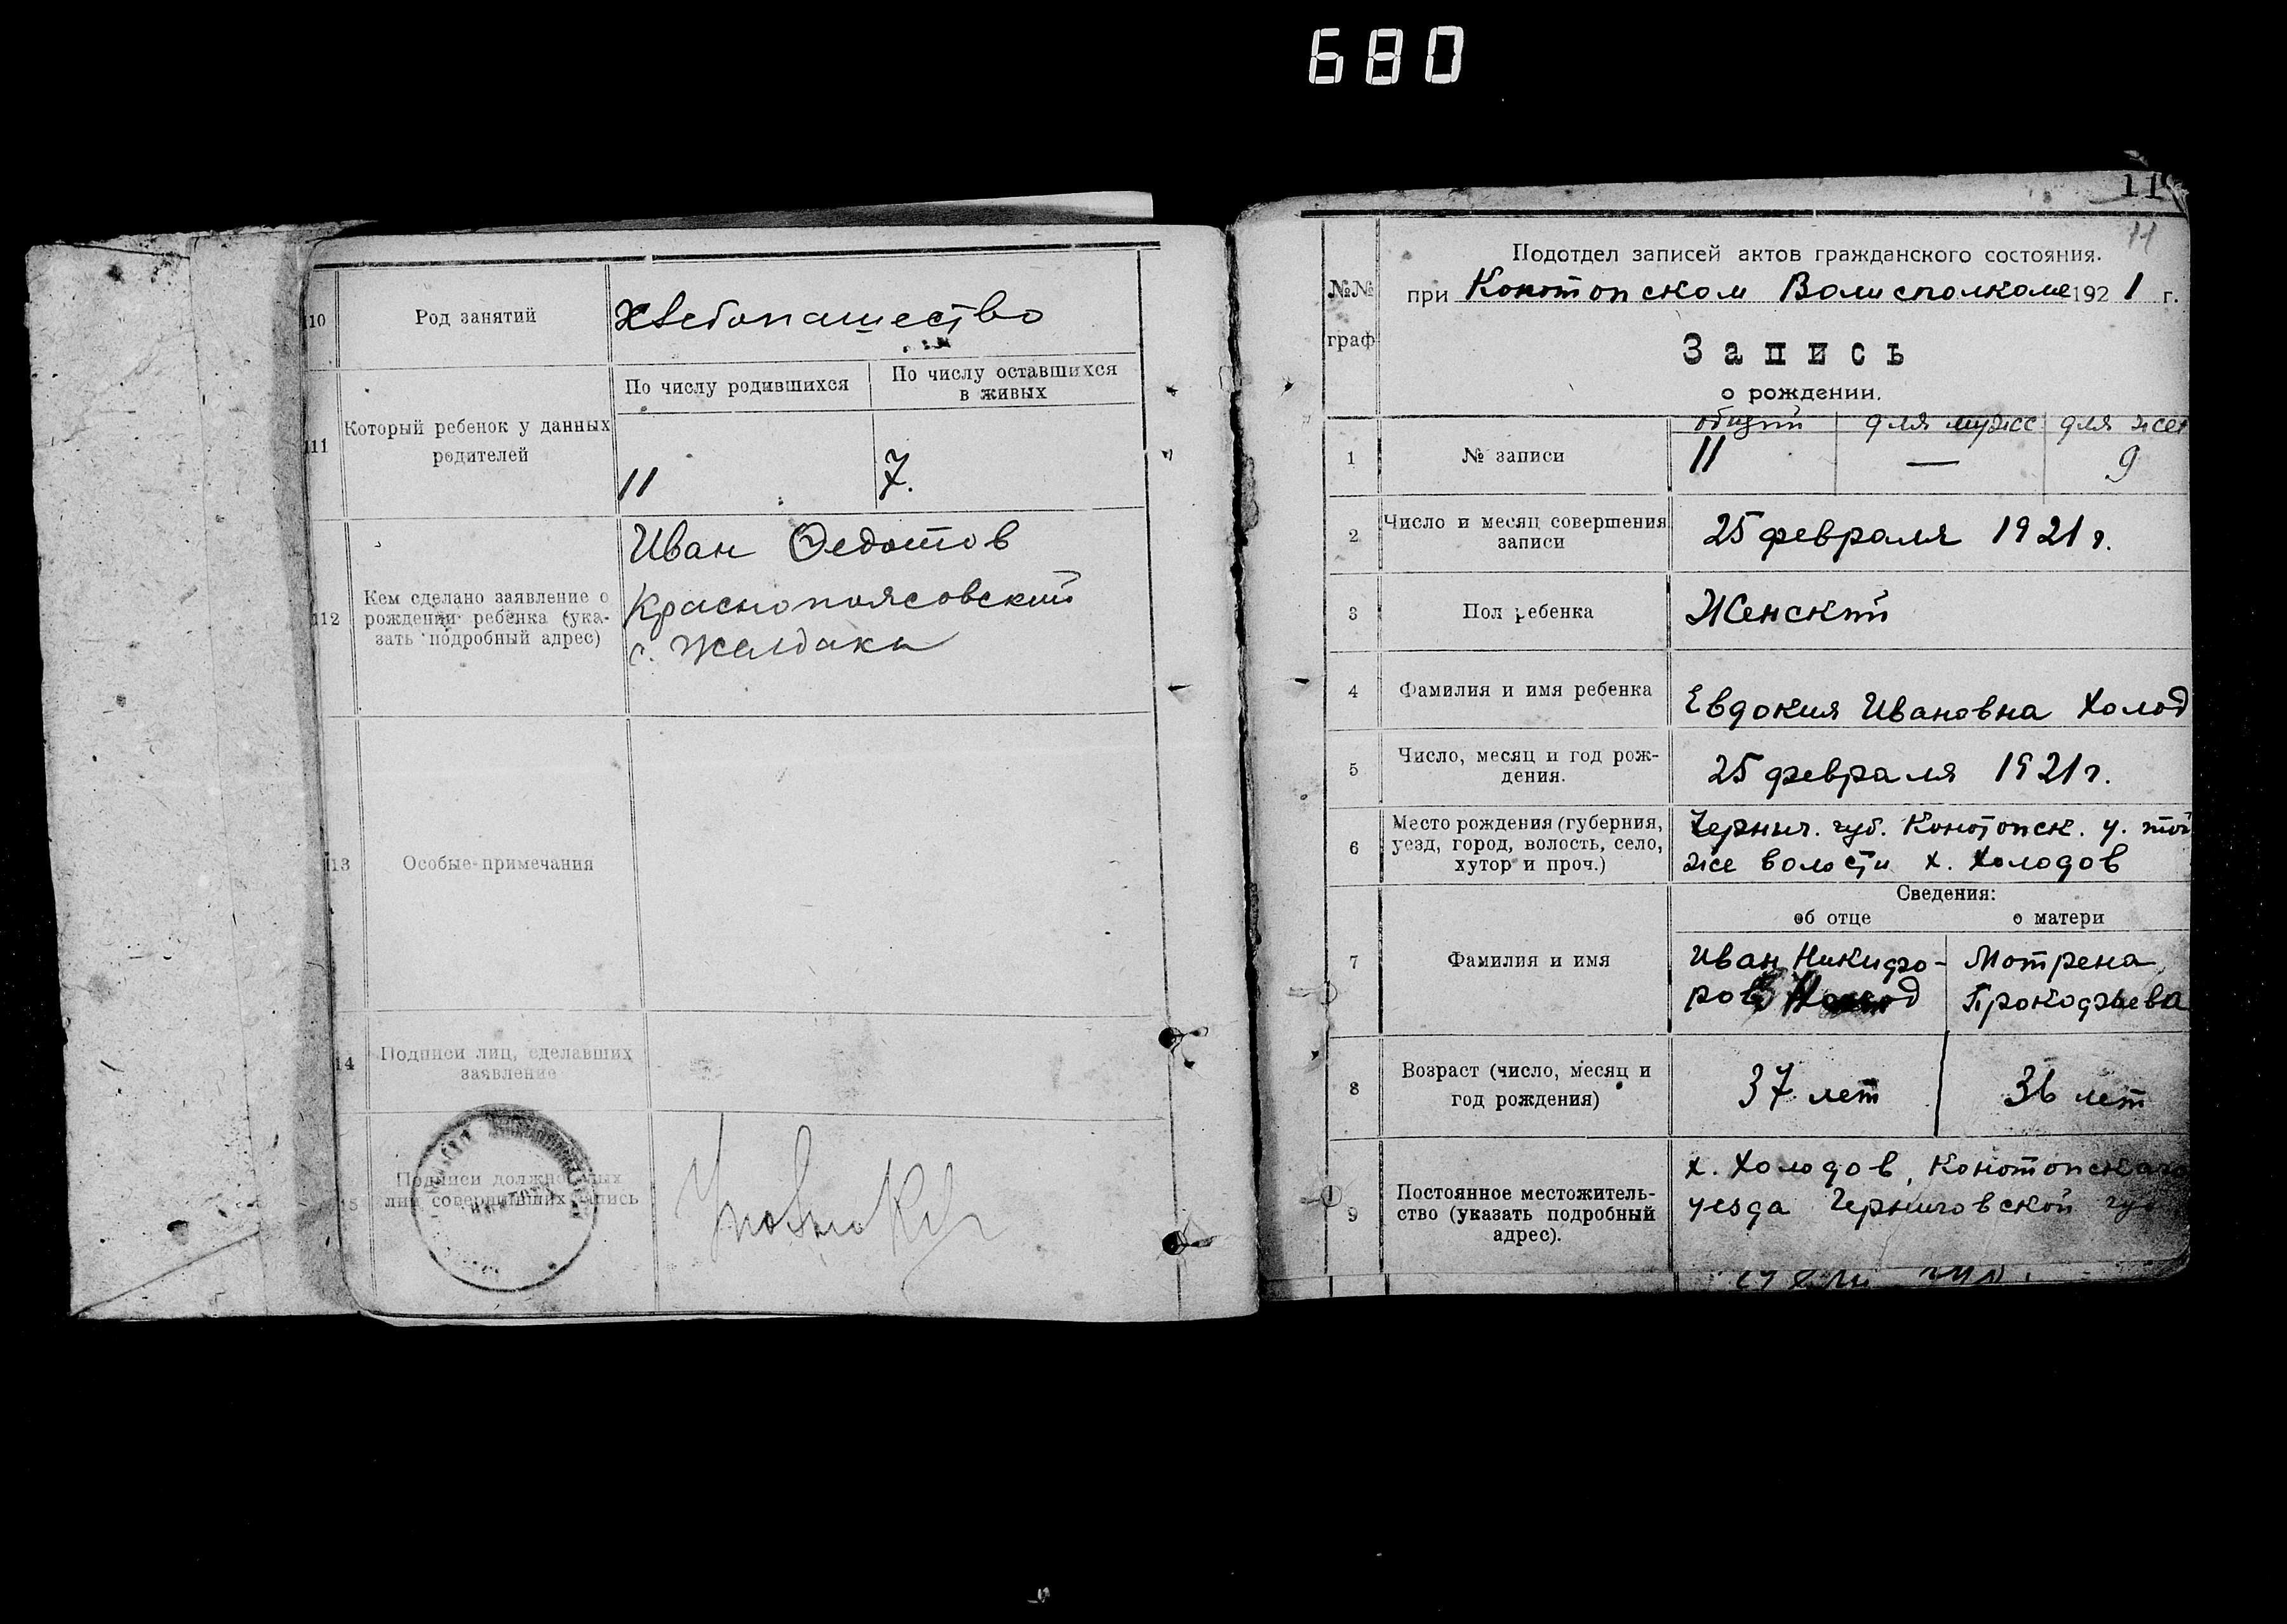 680
10
Род занятий
хлебопашество
11
Который ребенок у данных
родителей
По числу родившихся
По числу оставшихся
в живых
11
7.
12
Кем сделано заявление о
рождении ребенка (ука-
зать подробный адрес)
Иван Федотов
Краснопоясовский
с. Желдаки
13
Особые примечания
14
Подписи лиц, сделавших
заявление
15
Подписи должностных
лиц совершивших запись
11
11
№№
граф
Подотдел записей актов гражданского состояния.
при Конотопском Волисполкоме 1921 г.
Запись
о рождении.
общий
для мужс
для жен
1
№ записи
11
—
9
2
Число и месяц совершения
записи
25 февраля 1921 г.
3
Пол ребенка
Женский
4
Фамилия и имя ребенка
Евдокия Ивановна Холод
5
Число, месяц и год рож-
дения.
25 февраля 1921 г.
6
Место рождения (губерния,
уезд, город, волость, село,
хутор и проч.)
Черниг. губ. Конотопск. у. той
же волости х. Холодов
Сведения:
об отце
о матери
7
Фамилия и имя
Иван Никифо-
ров Холод
Мотрена
Прокофьева
8
Возраст (число, месяц и
год рождения)
37 лет
36 лет
9
Постоянное местожитель-
ство (указать подробный
адрес).
х. Холодов, Конотопскаго
уезда Черниговской гу